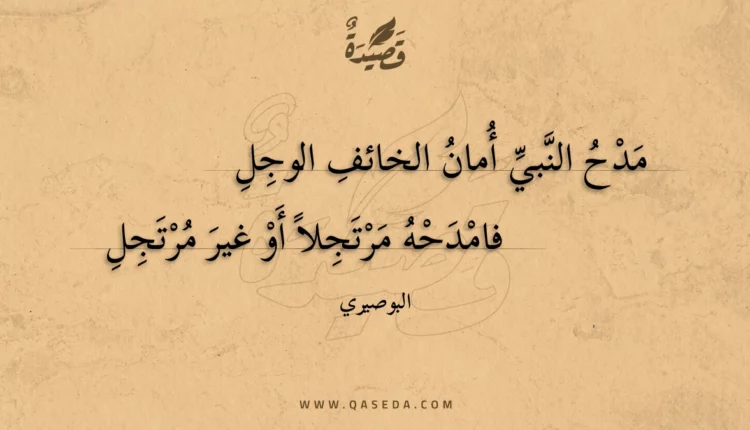 قَصِيْدَةٌ
مَدْحُ النَّبيِّ أُمانُ الخائفِ الوجِلِ
فامْدَحْهُ مَرْتَجِلاً أَوْ غيرَ مُرْتَجِلِ
البوصيري
WWW.QASEDA.COM